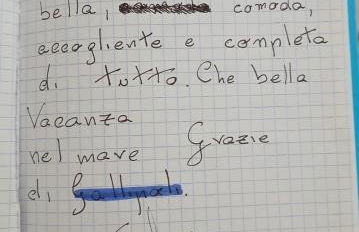 bella, comoda,
accogliente e completa
di tutto. Che bella
Vacanza
nel mare Grazie
di Gallipoli.